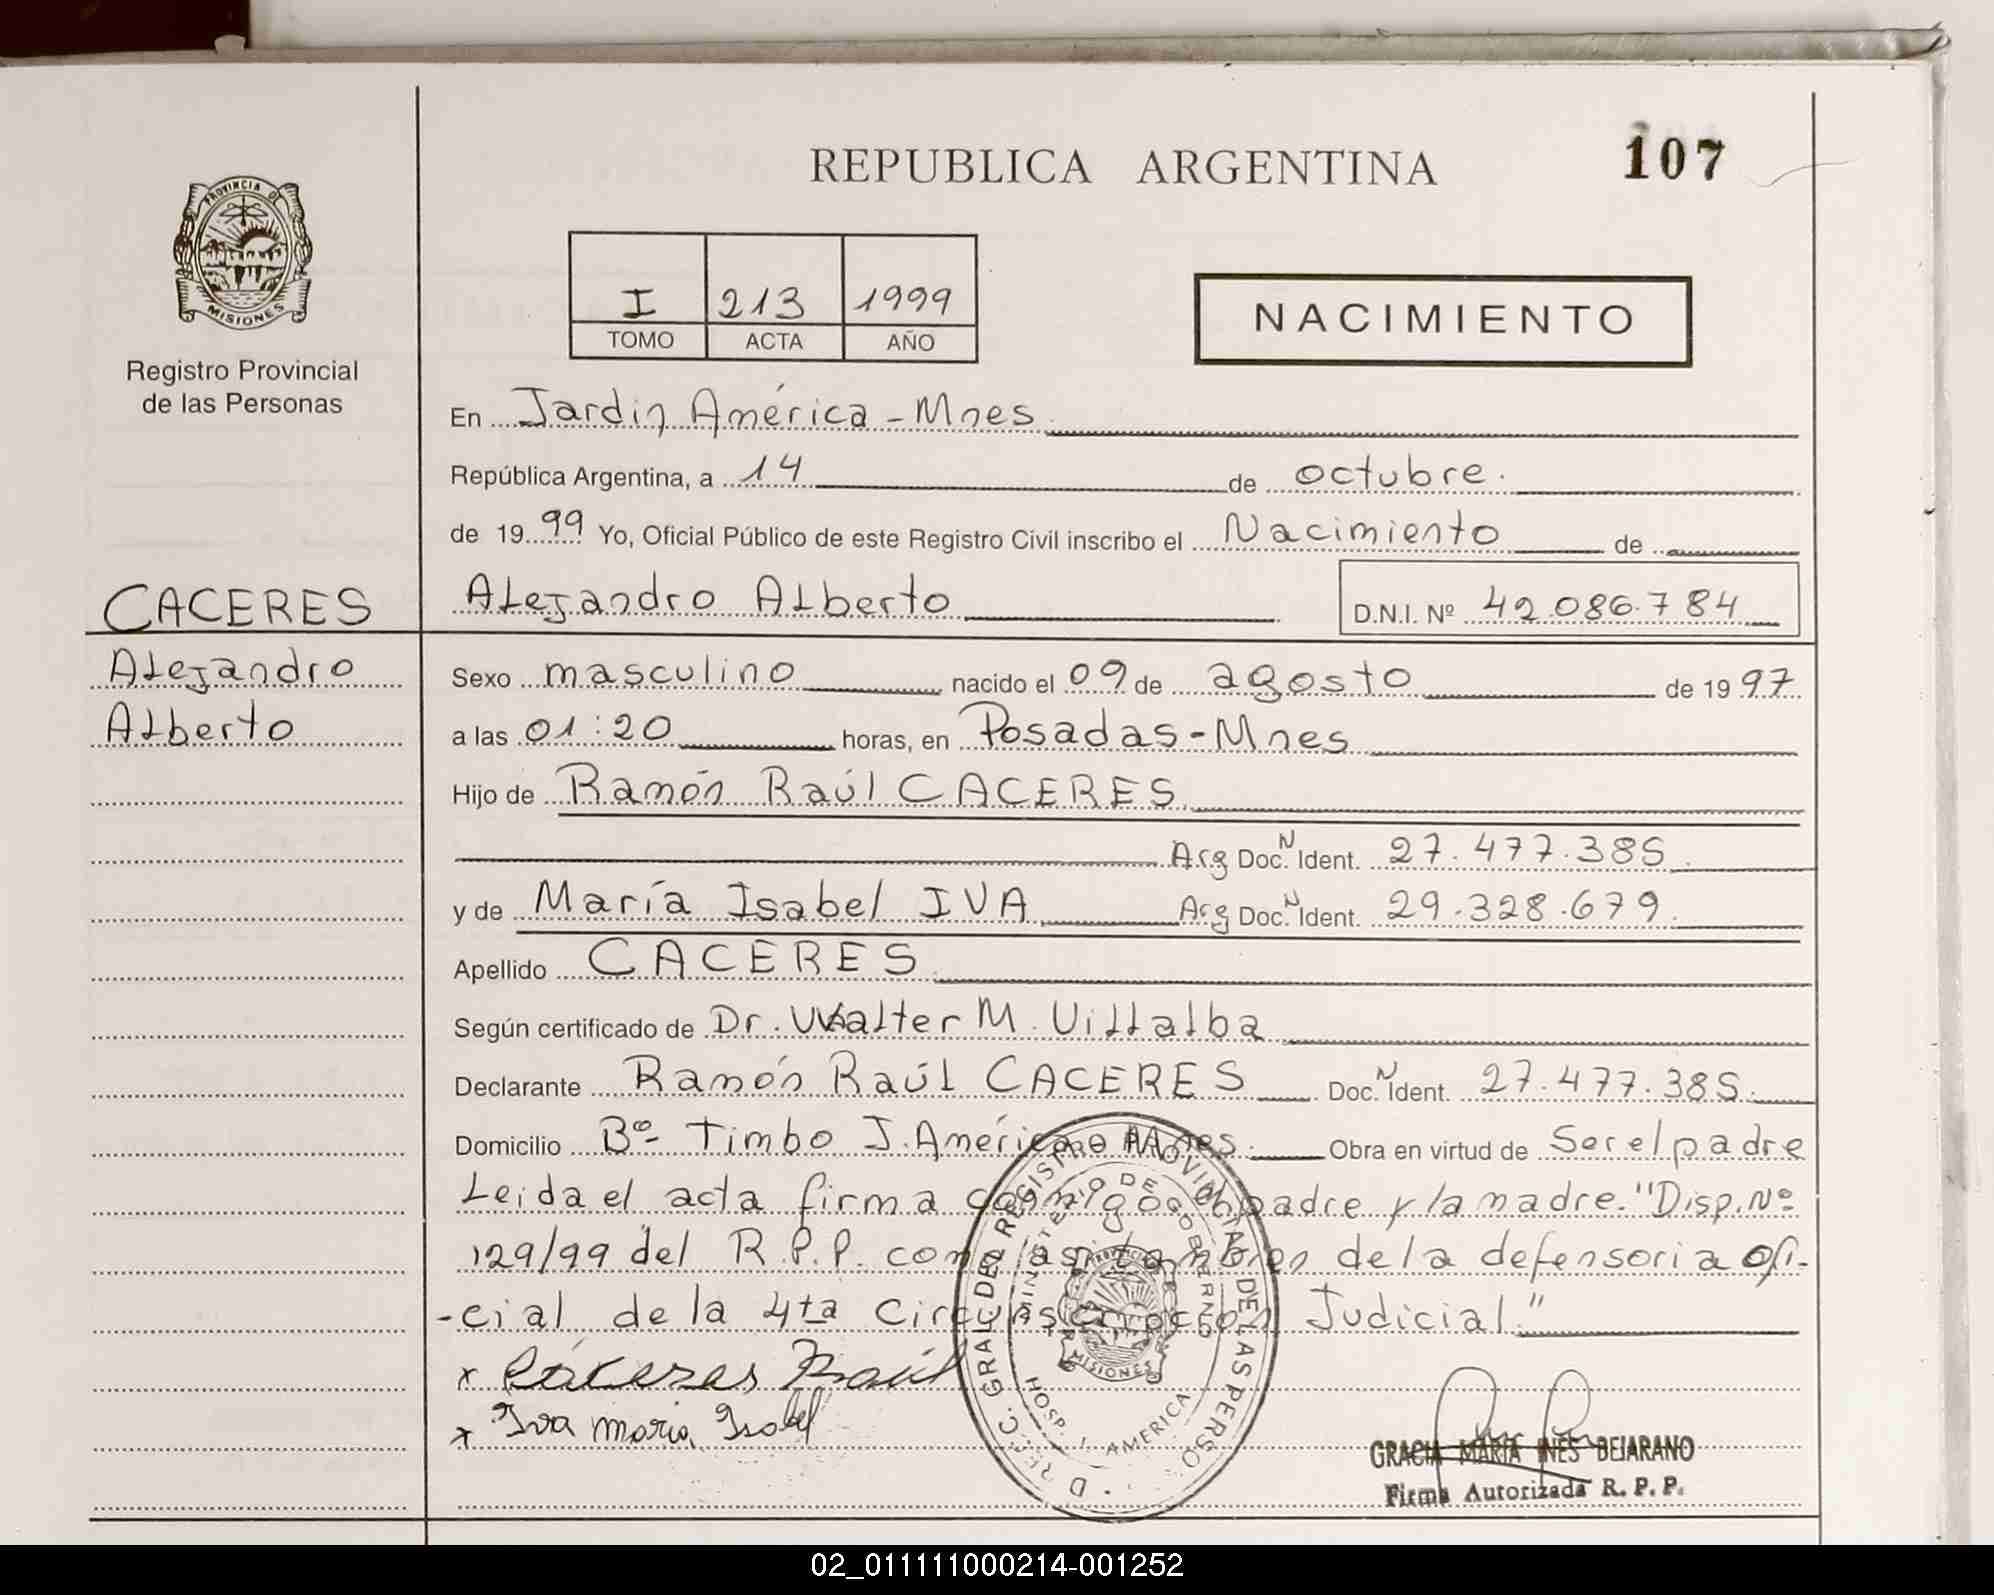 REPUBLICA ARGENTINA
107
PROVINCIA DE
MISIONES
Registro Provincial
de las Personas
I 213 1999
TOMO ACTA AÑO
NACIMIENTO
En Jardin América - Mnes
República Argentina, a 14 de octubre.
de 1999 Yo, Oficial Público de este Registro Civil inscribo el Nacimiento de
CACERES
Alejandro Alberto D.N.I. Nº 42.086.784
Alejandro
Alberto
Sexo masculino nacido el 09 de agosto de 1997
a las 01:20 horas, en Posadas - Mnes
Hijo de Ramón Raúl CACERES
Arg Doc. N Ident. 27.477.385
y de María Isabel IVA Arg Doc. N Ident. 29.328.679
Apellido CACERES
Según certificado de Dr. Walter M. Villalba
Declarante Ramón Raúl CACERES Doc. N Ident. 27.477.385
Domicilio Bº- Timbo J. América Mnes Obra en virtud de Ser el padre
Leida el acta firma conmigo el padre y la madre. "Disp. Nº
129/99 del R.P.P. con intervención de la defensoria ofi-
-cial de la 4ta Circunscripción Judicial"
x Cáceres Raúl
x Iva Maria Isabel
DIRECC. GRAL. DEL REGISTRO PROVINCIAL DE LAS PERSO
MINISTERIO DE GOBIERNO
MISIONES
HOSP. J. AMERICA
GRACIA MARIA INES BEJARANO
Firma Autorizada R. P. P.
02_011111000214-001252